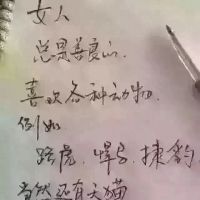 女人
总是善良的.
喜欢各种动物.
例如
路虎、悍马、捷豹
当然还有天猫